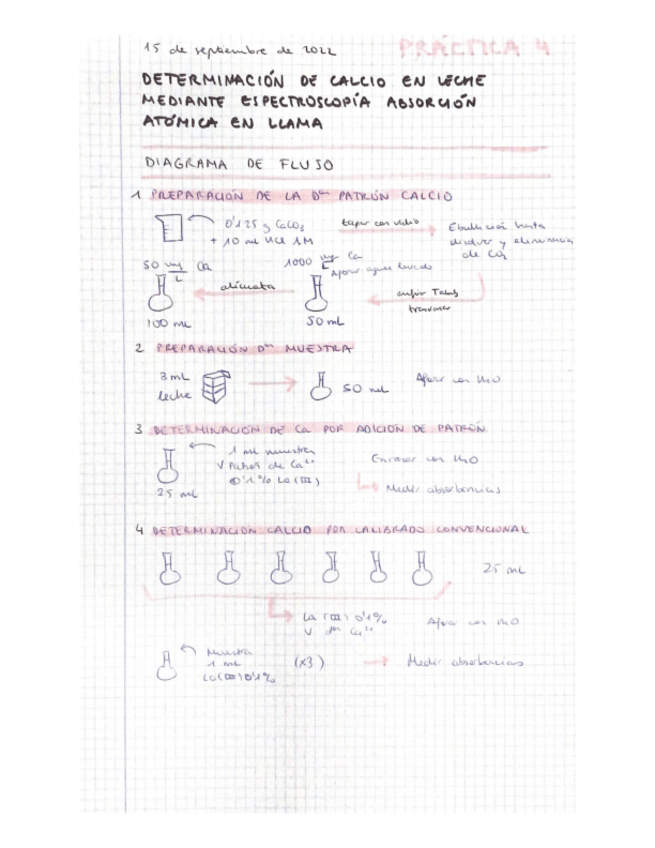 15 de septiembre de 2022
PRÁCTICA 4
DETERMINACIÓN DE CALCIO EN LECHE
MEDIANTE ESPECTROSCOPÍA ABSORCIÓN
ATÓMICA EN LLAMA
DIAGRAMA DE FLUJO
1 PREPARACIÓN DE LA Dón PATRÓN CALCIO
0'125 g CaCO3
+ 10 mL HCl 1M
tapar con vidrio
Ebullición hasta
disolver y eliminación
de CO2
enfriar Tamb
transvasar
1000 mg/L Ca
Aforar agua lavado
50 mL
alícuota
50 mg/L Ca
100 mL
2 PREPARACIÓN Dón MUESTRA
3 mL
leche
50 mL
Aforar con H2O
3 DETERMINACIÓN DE Ca POR ADICIÓN DE PATRÓN
1 mL muestra
V Patrón de Ca2+
0'1% La(III)
25 mL
Enrasar con H2O
Medir absorbancias
4 DETERMINACIÓN CALCIO POR CALIBRADO CONVENCIONAL
25 mL
La (III) 0'1%
V dón Ca2+
Aforar con H2O
Muestra
1 mL
La(III) 0'1%
(x3)
Medir absorbancias